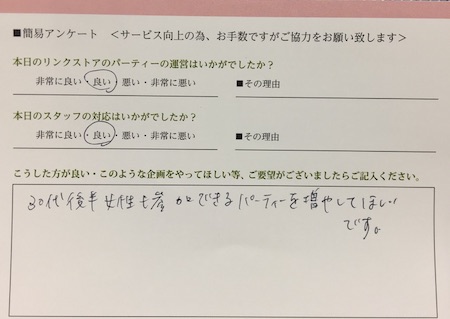 ■簡易アンケート ＜サービス向上の為、お手数ですがご協力をお願い致します＞
本日のリンクストアのパーティーの運営はいかがでしたか？
非常に良い・良い・悪い・非常に悪い ■その理由
本日のスタッフの対応はいかがでしたか？
非常に良い・良い・悪い・非常に悪い ■その理由
こうした方が良い・このような企画をやってほしい等、ご要望がございましたらご記入ください。
30代後半女性も参加できるパーティーを増やしてほしい
です。